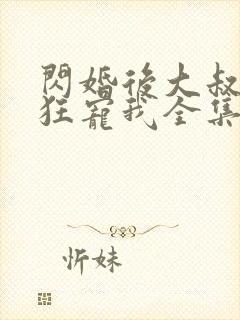 閃婚後大叔
狂寵我全集
忻妹